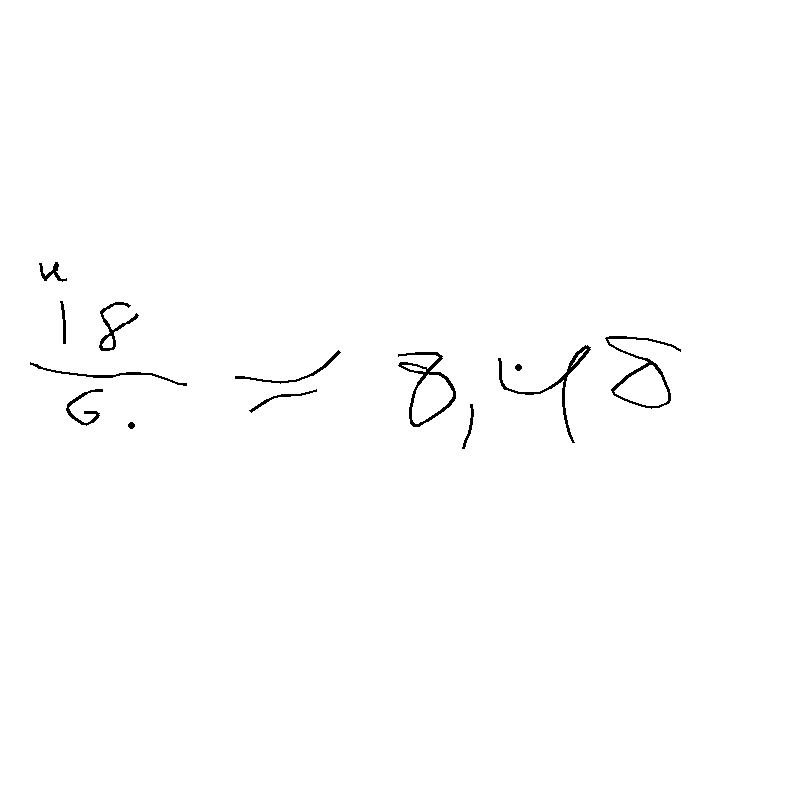 u
18
6. = 8,48